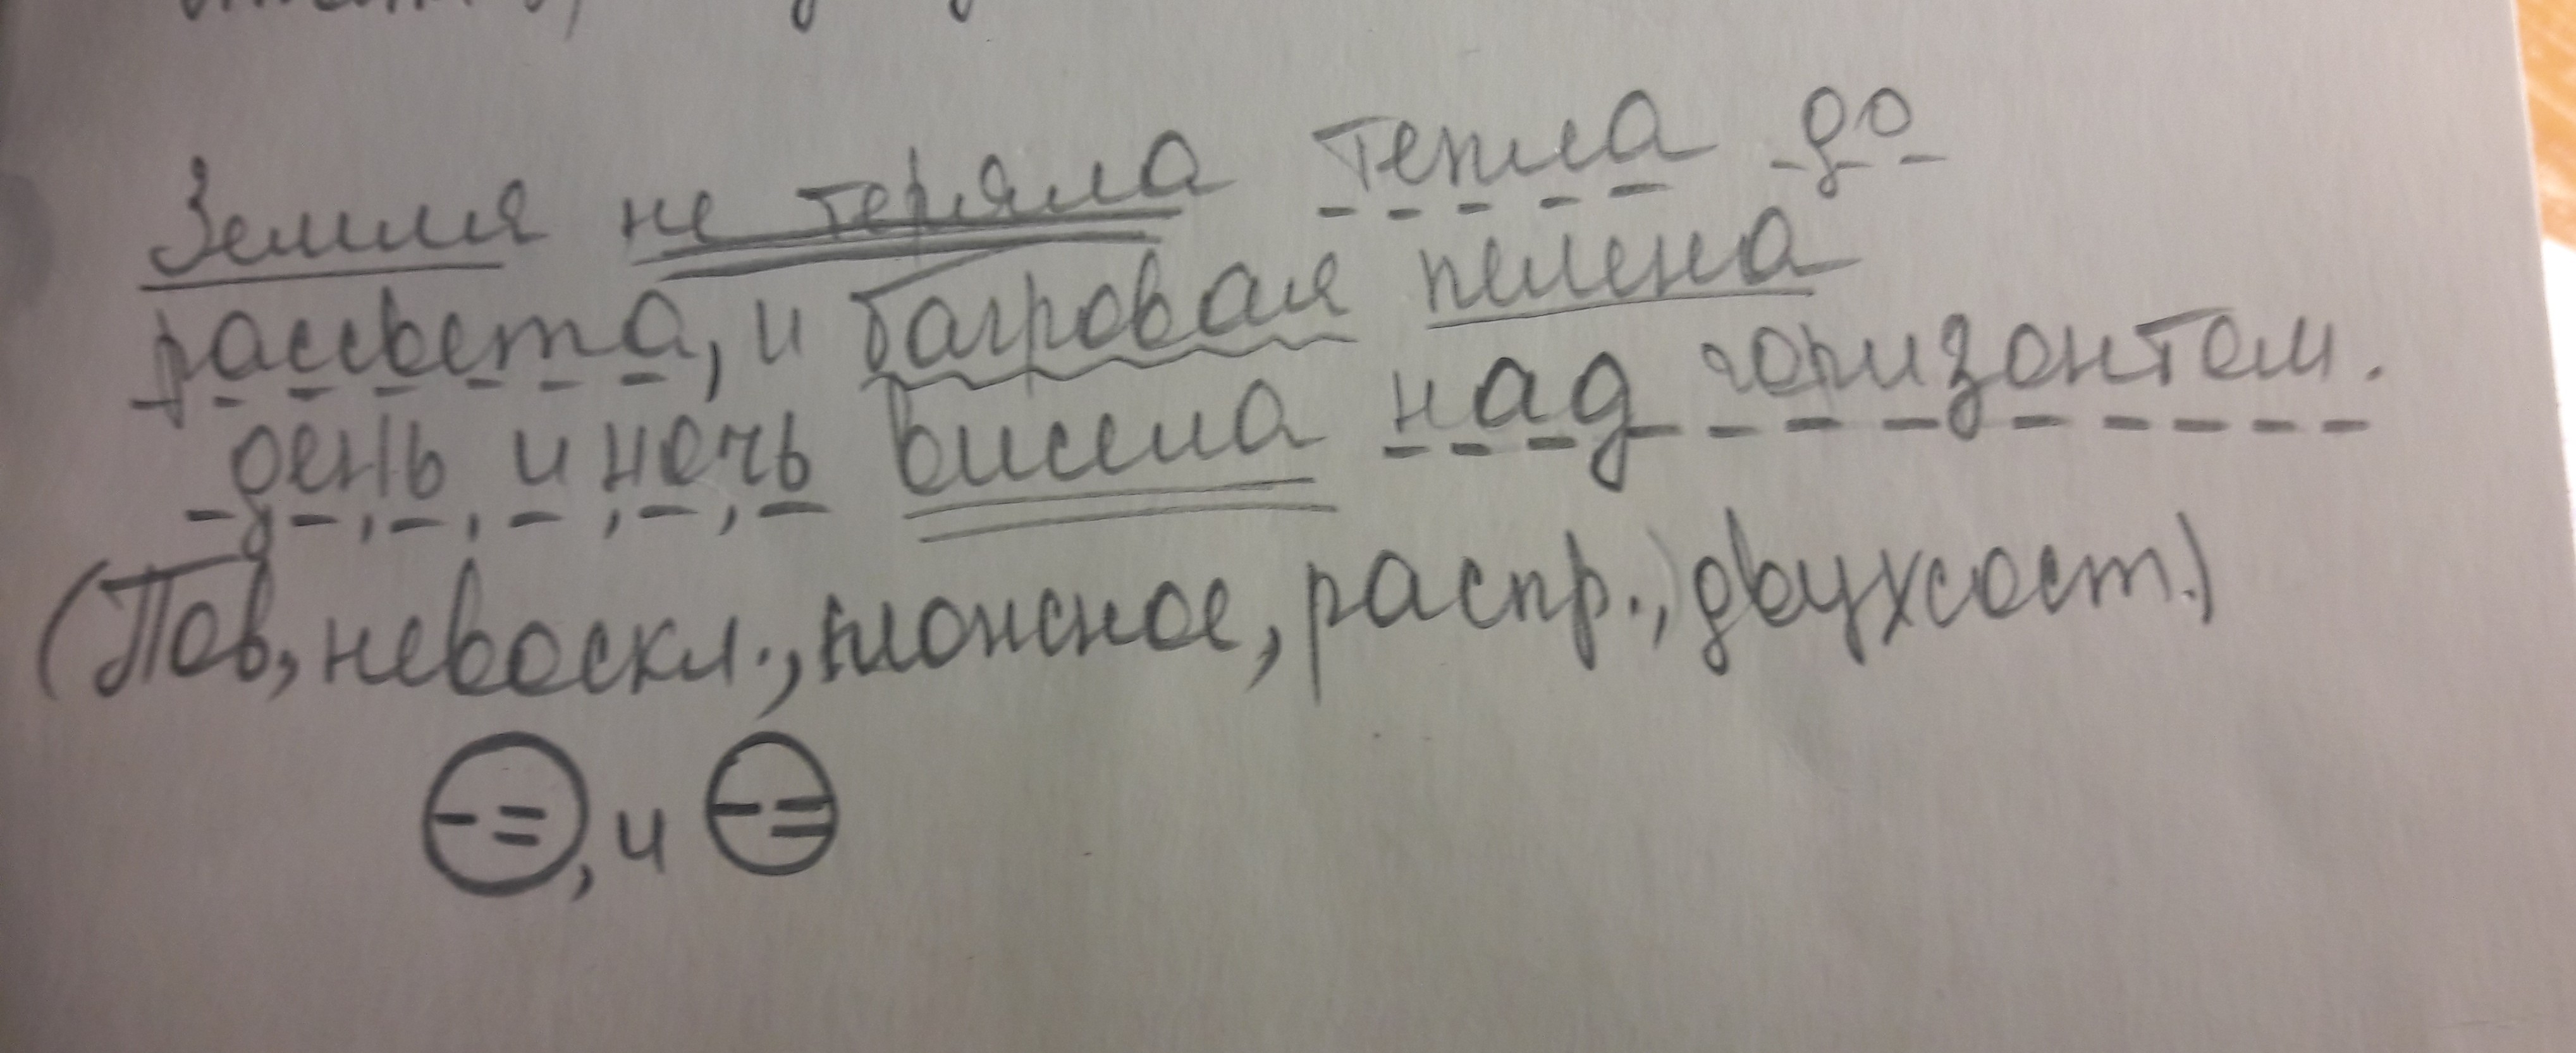 Земля не теряла тепла до
рассвета, и багровая пелена
день и ночь висела над горизонтом.
(Пов, невоскл., сложное, распр., двухсост.)
, и